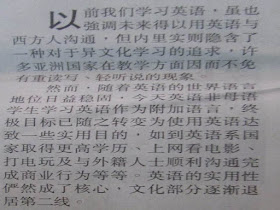 以前我们学习英语，虽也
强调未来得以用英语与
西方人沟通，但内里实则隐含了
一种对于异文化学习的追求，许
多亚洲国家在教学方面因而不免
有重读写、轻听说的现象。
然而，随着英语的世界语言
地位日益稳固，今天英语非母语
学生学习英语作为附加语言，终
极目标已随之转变为使用英语达
致一些实用目的，如到英语系国
家取得更高学历、上网看电影、
打电玩及与外籍人士顺利沟通完
成商业行为等等。英语的实用性
俨然成了核心，文化部分逐渐退
居第二线。